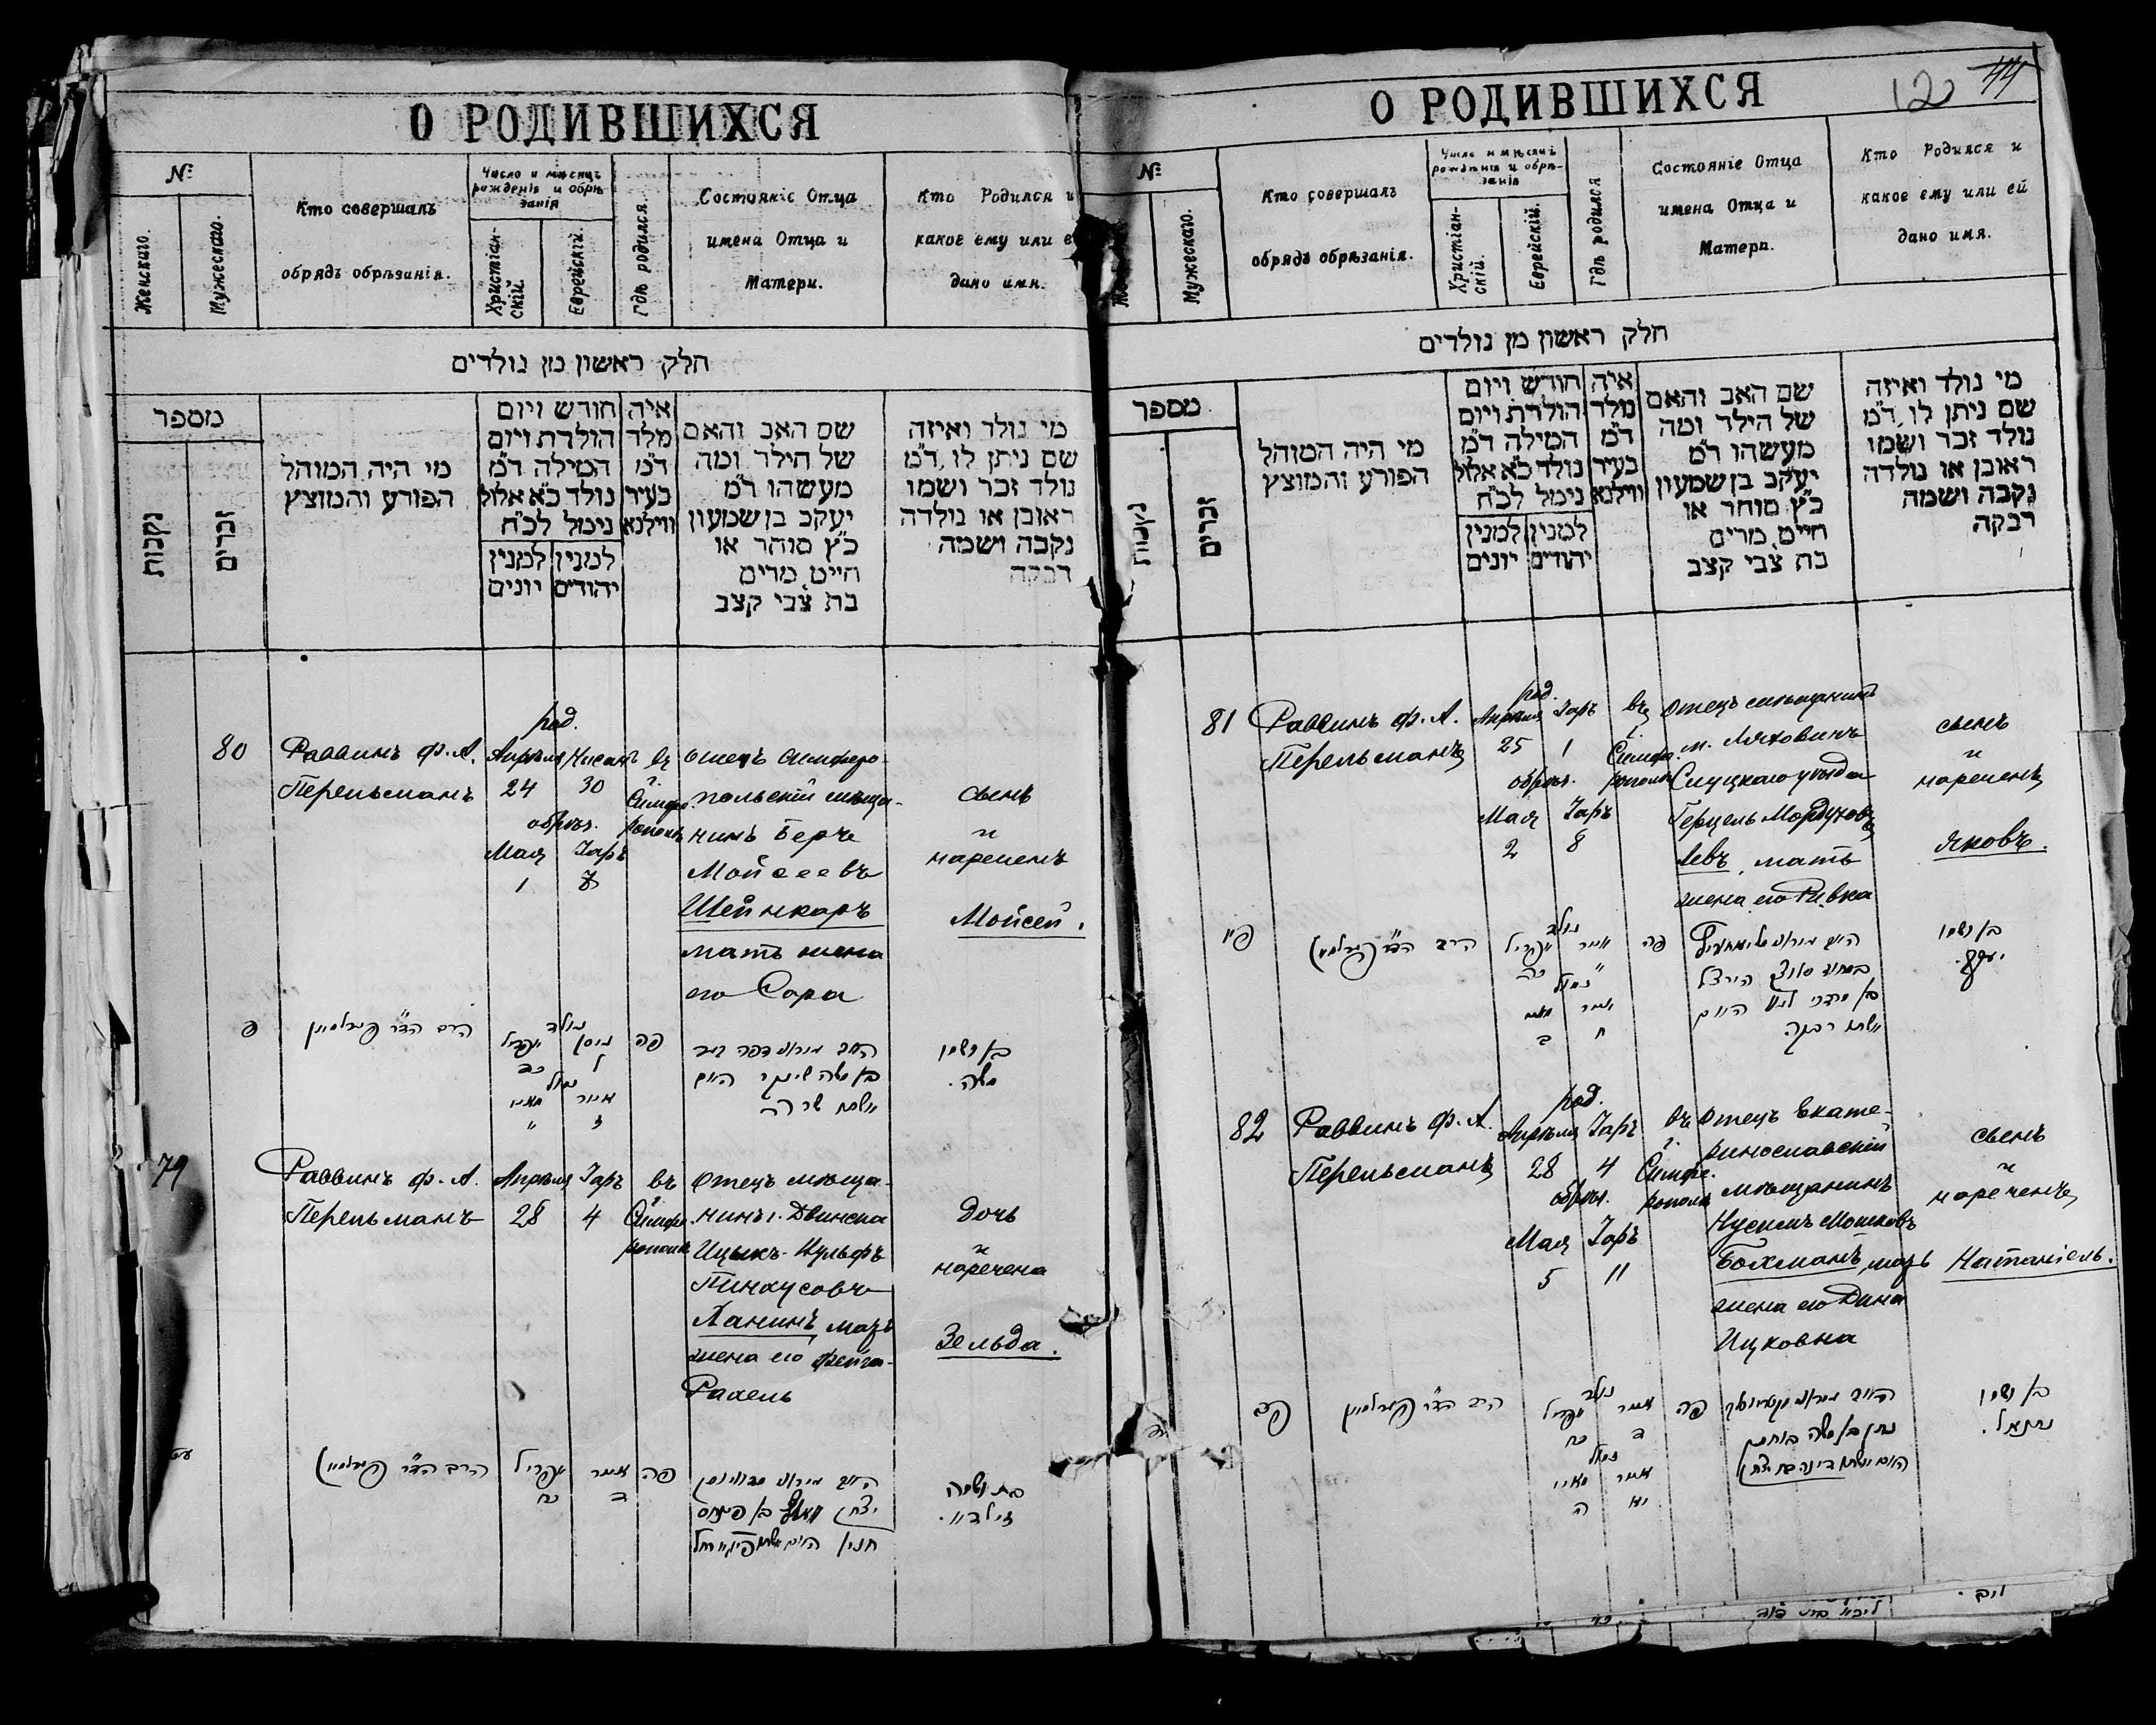 О РОДИВШИХСЯ
№
Женскаго.
Мужескаго.
Кто совершалъ
обрядъ обрѣзанія.
Число и мѣсяцъ
рожденія и обрѣ-
занія
Христіан-
скій.
Еврейскій.
Гдѣ родился.
Состояніе Отца
имена Отца и
Матери.
Кто Родился и
какое ему или е
дано имя.
חלק ראשון מן נולדים
מספר
נקבות
זכרים
מי היה המוהל
הפורע והמוצץ
חודש ויום
הולדת ויום
המילה ד״מ
נולד כ״א אלול
נימל לכ״ח
למנין יהודים
למנין יונים
איה
מלד
ד״מ
בעיר
ווילנא
שם האב והאם
של הילד ומה
מעשהו ד״מ
יעקב בן שמעון
כ״ץ סוחר או
חייט, מרים
בת צבי קצב
מי נולד ואיזה
שם ניתן לו, ד״מ
נולד זכר ושמו
ראובן או נולדה
נקבה ושמה
רבקה
80
Раввинъ Ф. А.
Перельманъ
род.
Апрѣля Нисанъ
24 30
обрѣз.
Мая Іаръ
1 7
въ
г.
Симфе-
рополѣ
Отецъ Симферо-
польскій мѣща-
нинъ Беръ
Мойсеевъ
Шейнкаръ
мать жена
его Сора
сынъ
и
нареченъ
Мойсей.
פ
הרב הד״ר פערלמאן
נולד
ניסן אפריל
ל כד
נמול
אייר מאי
ז
פה
בן ושמו
משה.
79
Раввинъ Ф. А.
Перельманъ
Апрѣля Іаръ
28 4
въ
г.
Симфе-
рополѣ
Отецъ мѣща-
нинъ г. Двинска
Ицыкъ-Вульфъ
Пинхусовъ
Ханинъ, мать
жена его Фейга-
Рахель
Дочь
и
наречена
Зельда.
עט
הרב הד״ר פערלמאן
אייר אפריל
ד כח
פה
בת ושמה
זילדא.
О РОДИВШИХСЯ
12
44
№
Мужескаго.
Кто совершалъ
обрядъ обрѣзанія.
Число и мѣсяцъ
рожденія и обрѣ-
занія
Христіан-
скій.
Еврейскій.
Гдѣ родился
Состояніе Отца
имена Отца и
Матери.
Кто Родился и
какое ему или ей
дано имя.
חלק ראשון מן נולדים
מספר
נקבות
זכרים
מי היה המוהל
הפורע והמוצץ
חודש ויום
הולדת ויום
המילה ד״מ
נולד כ״א אלול
נימל לכ״ח
למנין יהודים
למנין יונים
איה
מלד
ד״מ
בעיר
ווילנא
שם האב והאם
של הילד ומה
מעשהו ד״מ
יעקב בן שמעון
כ״ץ סוחר או
חייט, מרים
בת צבי קצב
מי נולד ואיזה
שם ניתן לו, ד״מ
נולד זכר ושמו
ראובן או נולדה
נקבה ושמה
רבקה
81
Раввинъ Ф. А.
Перельманъ
род.
Апрѣля Іаръ
25 1
обрѣз.
Мая Іаръ
2 8
въ
г.
Симфе-
рополѣ
Отецъ мѣщанинъ
м. Ляховичъ
Слуцкаго уѣзда
Герцель Мордуховъ
Левъ, мать
жена его Ривка
сынъ
и
нареченъ
Яковъ.
פא
הרב הד״ר פערלמאן
נולד
אייר אפריל
נמול
אייר מאי
ח ב
פה
בן ושמו
יעקב.
82
Раввинъ Ф. А.
Перельманъ
род.
Апрѣля Іаръ
28 4
обрѣз.
Мая Іаръ
5 11
въ
г.
Симфе-
рополѣ
Отецъ Екате-
ринославскій
мѣщанинъ
Нусимъ Мошковъ
Бохманъ, мать
жена его Дина
Ицковна
сынъ
и
нареченъ
Натаніель.
פב
הרב הד״ר פערלמאן
נולד
אייר אפריל
ד כח
נמול
אייר מאי
יא ה
פה
בן ושמו
נתנאל.